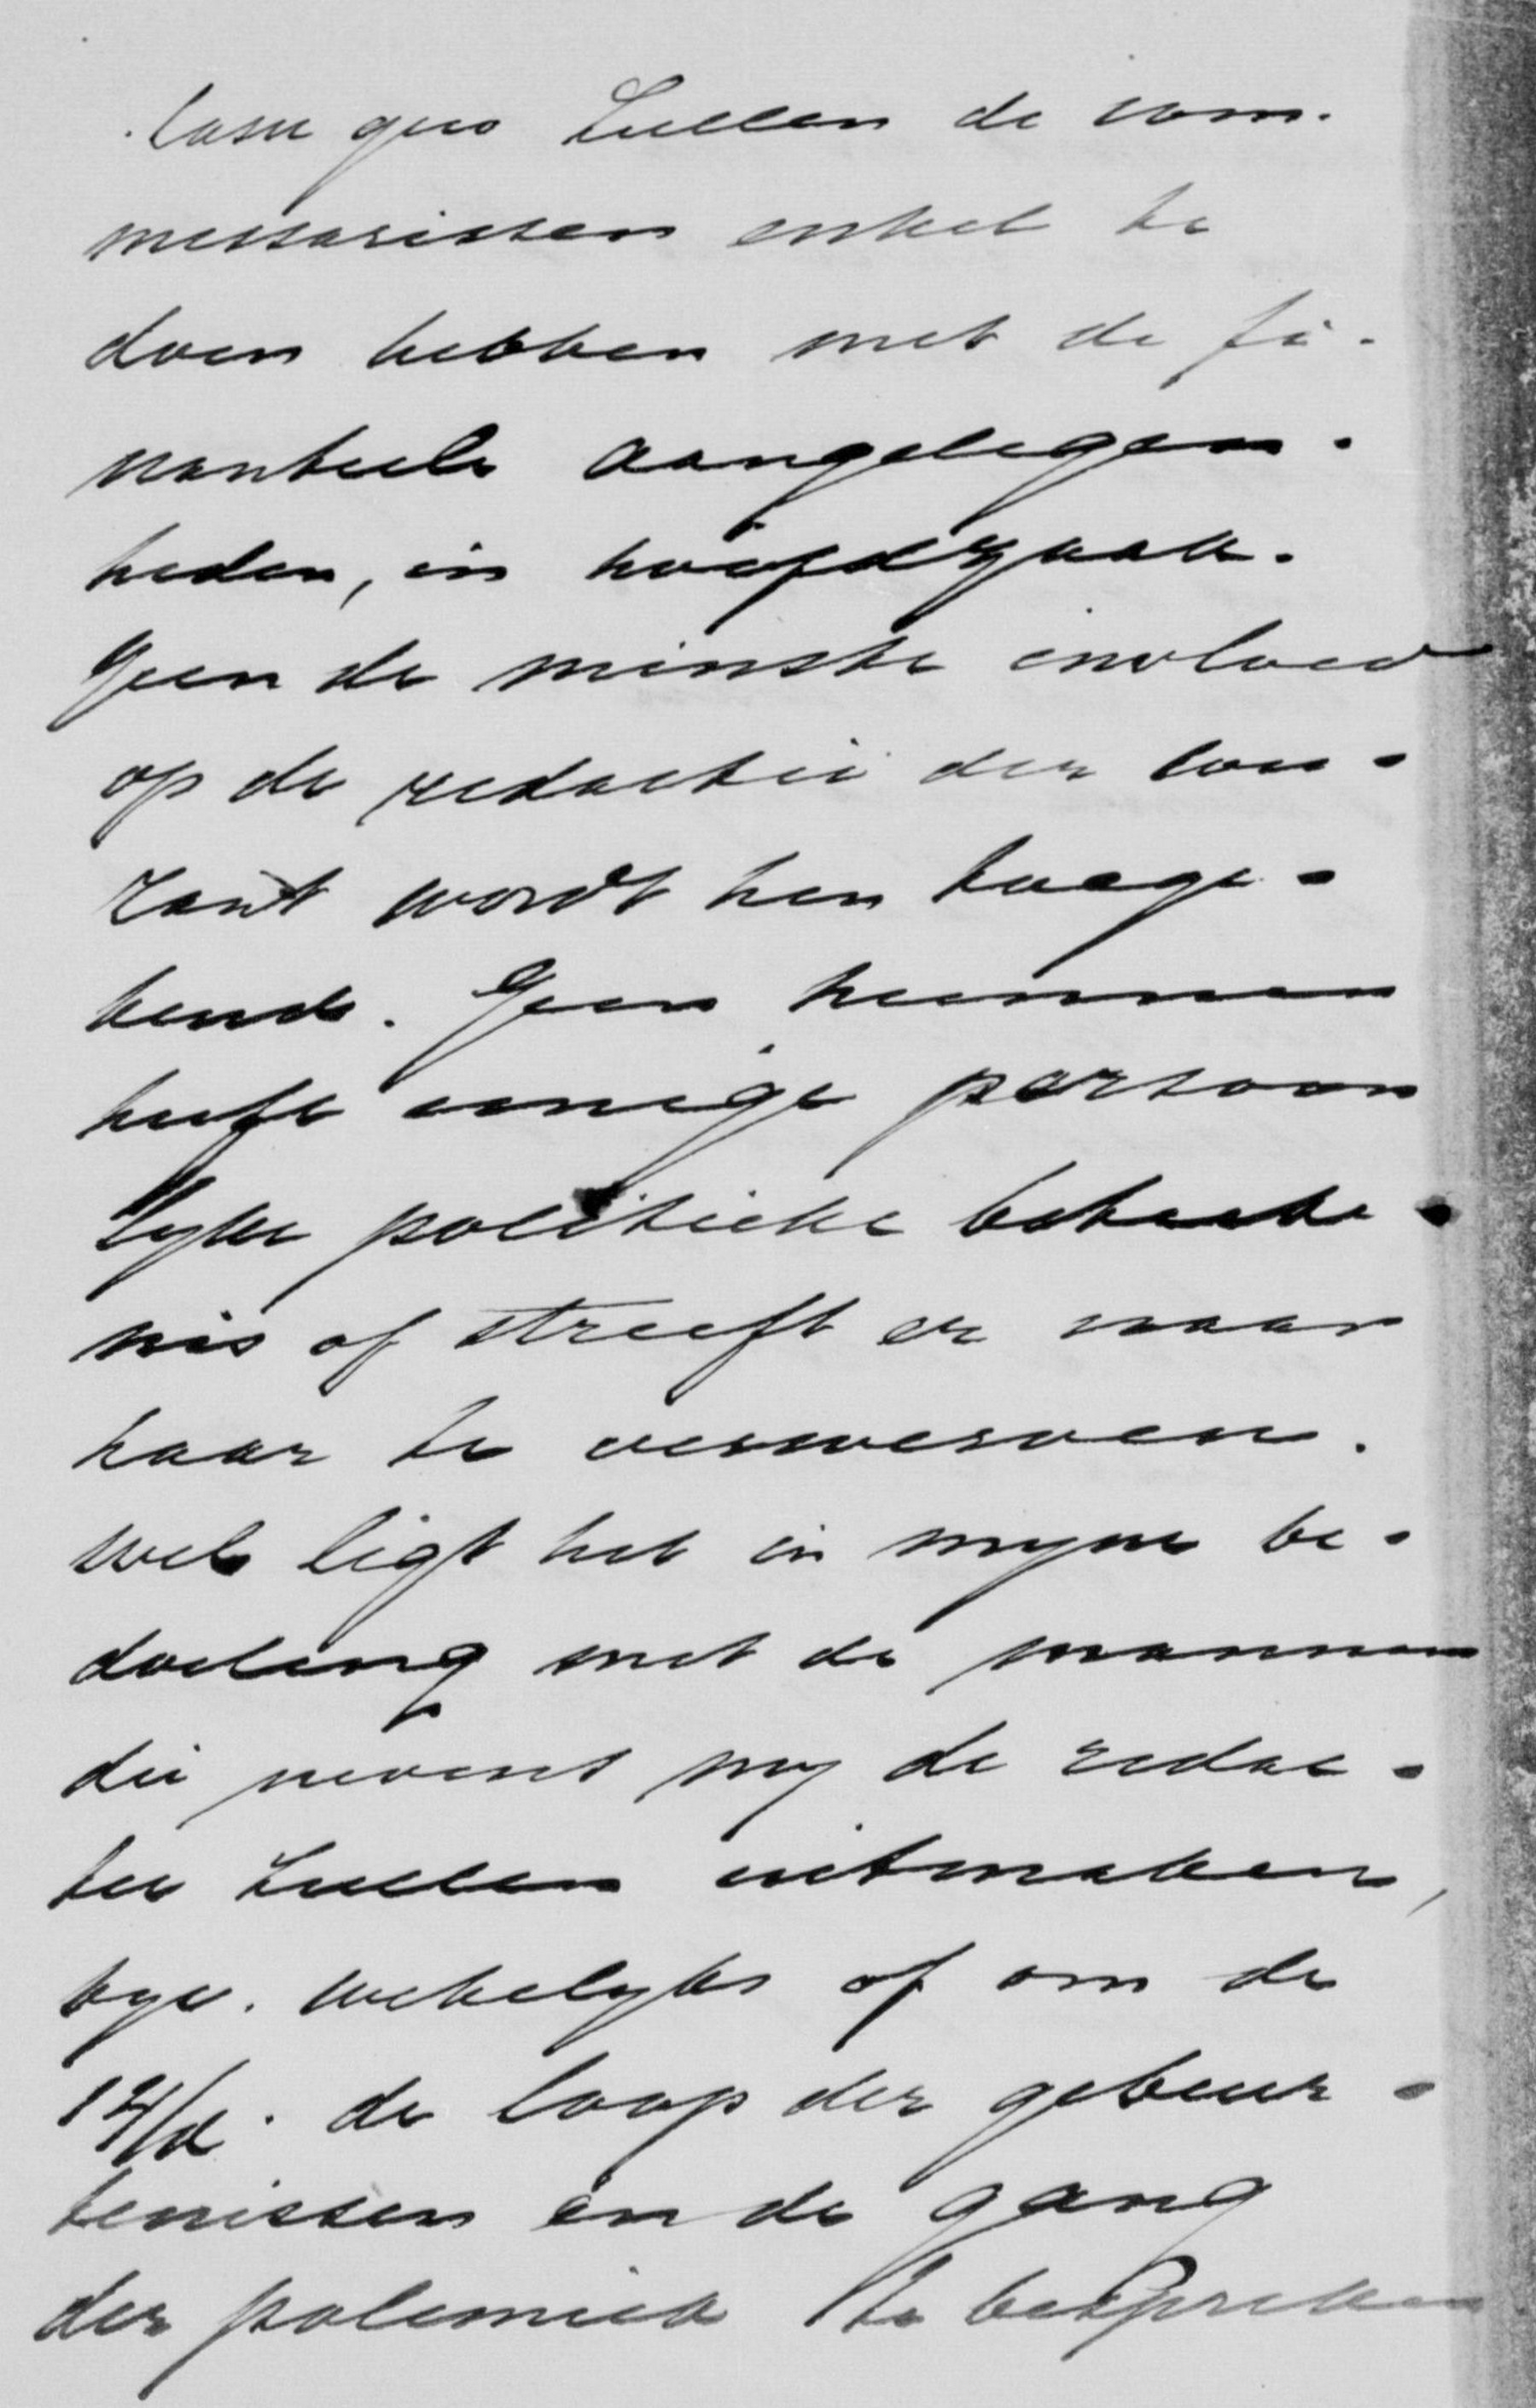 Casu quo zullen de com-
missarissen enkel te
doen hebben met de fi-
nantieele aangelegen-
heden, in hoofdzaak.
Geen de minste invloed
op de redactie der cou-
rant wordt hen toege-
kend. Geen hunner
heeft eenige persoon
lyke politieke beteeke-
nis of streeft er naar
haar te verwerven.
Wel ligt het in myne be-
doeling met de mannen
die nevens my de redac-
tie zullen uitmaken,
byv. wekelyks of om de
14/d. de loop der gebeur-
tenissen en de gang
der polemiek te bespreken